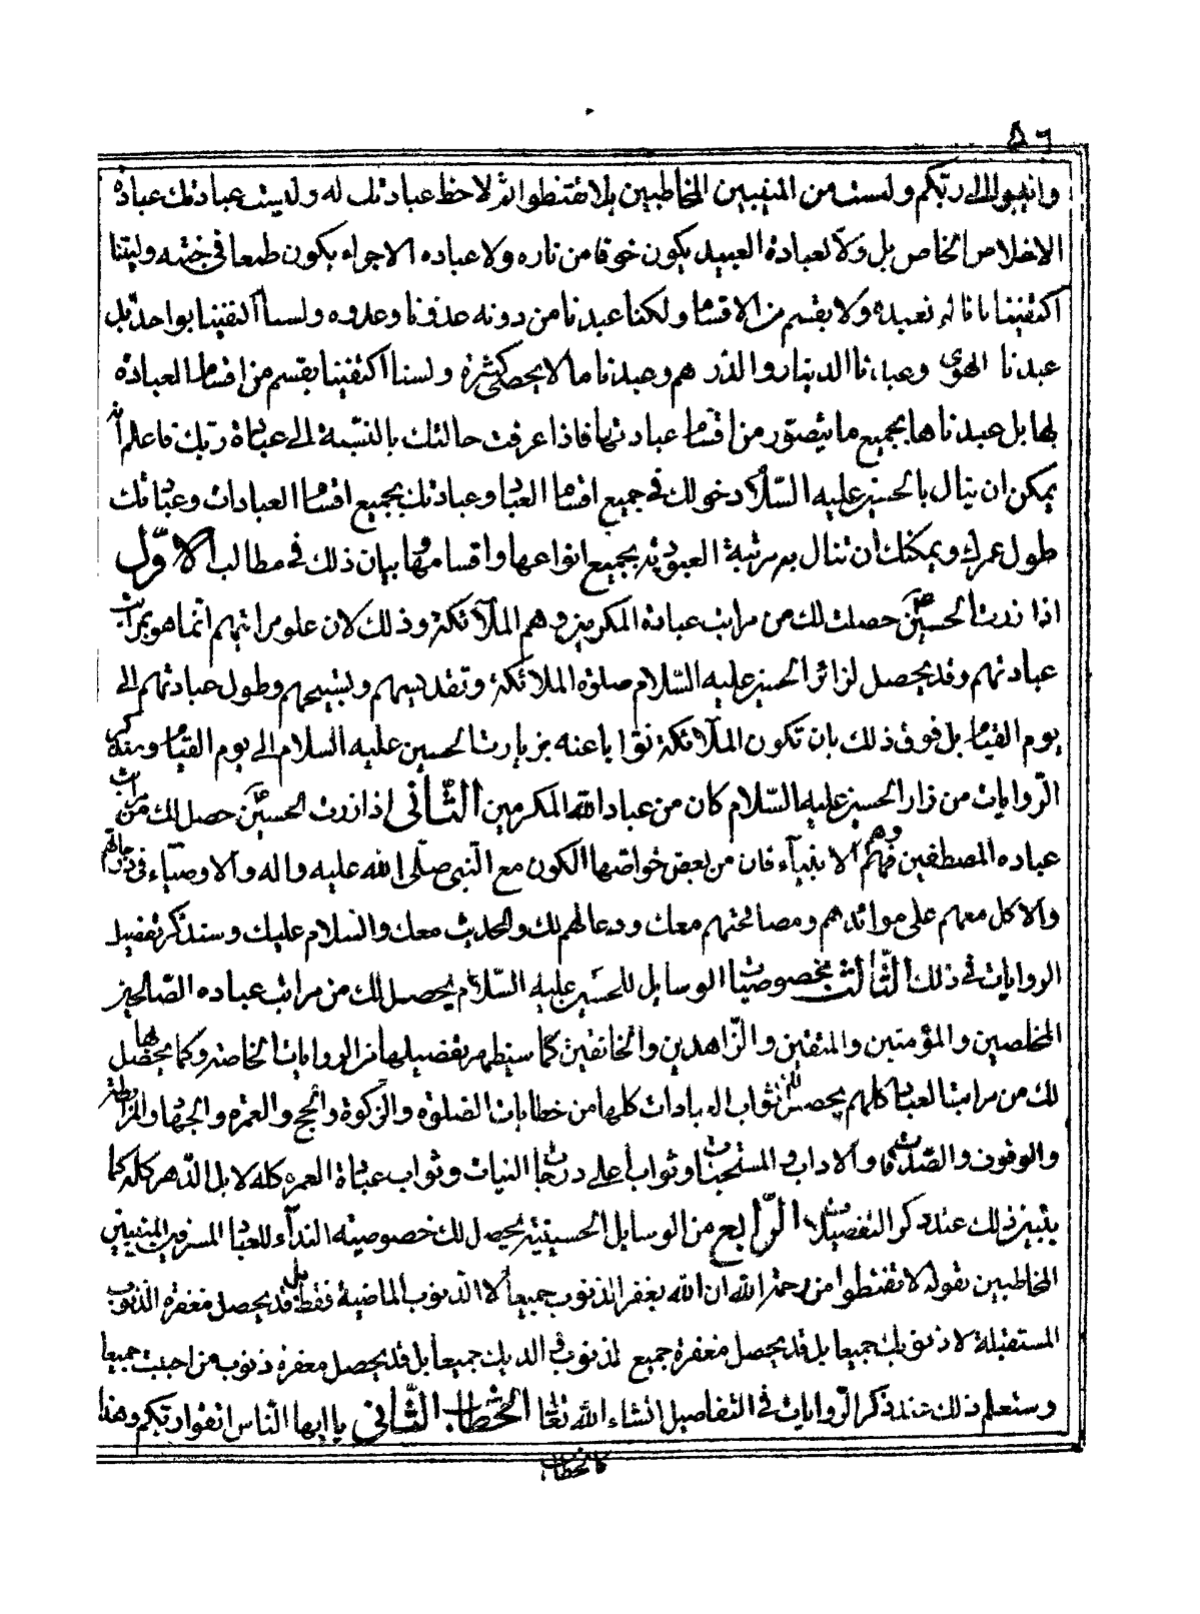 ٥٦
وانيبوا الى ربكم ولست من المنيبين المخاطبين بلا تقنطوا ثم لاحظ عبادتك له وليست عبادتك عبادة
الاخلاص الخاص بل ولا لعبادة العبيد يكون خوفا من ناره ولا عباده الاجراء يكون طمعا فى جنته وليتنا
اكتفينا بانا لم نعبده ولا بقسم من الاقسام ولكنا عبدنا من دونه عدونا وعدوه ولسنا اكتفينا بواحد بل
عبدنا الهوى وعبدنا الدينار والدرهم وعبدنا ما لا يحصى كثرة ولسنا اكتفينا بقسم من اقسام العبادة
لها بل عبدناها بجميع ما يتصور من اقسام عبادتها فاذا عرفت حالتك بالنسبة الى عبادة ربك فاعلم انه
يمكن ان ينال بالحسين عليه السلام دخولك فى جميع اقسام العباد وعبادتك بجميع اقسام العبادات وعباداتك
طول عمرك ويمكنك ان تنال به مرتبة العبودية بجميع انواعها واقسامها وبيان ذلك فى مطالب الاوّل
اذا زرت الحسين ع حصلت لك من مراتب عبادة المكرمين وهم الملآئكة وذلك لان علو مراتبهم انما هو بمراتب
عبادتهم وقد يحصل لزائر الحسين عليه السّلام صلوة الملائكة وتقديسهم وتسبيحهم وطول عبادتهم الى
يوم القيام بل فوق ذلك بان تكون الملآئكة نوّابا عنه بزيارت الحسين عليه السلام الى يوم القيام وبقدر كبر
الرّوايات من زار الحسين عليه السّلام كان من عباد الله المكرمين الثّانى اذا زرت الحسين ع حصل لك من مراتب
عباده المصطفين وهم الانبيآء فان من بعض خواصها الكون مع النّبى صلّى الله عليه واله والاوصيآء فى درجاتهم
والاكل معهم على موائدهم ومصافحتهم معك ودعائهم لك والحديث معك والسلام عليك وسنذكر تفصيل
الروايات فى ذلك الثّالث بخصوصيات الوسايل للحسين عليه السّلام يحصل لك من مراتب عباده الصّالحين
المخلصين والمؤمنين والمتقين والزّاهدين والخائفين كما سيظهر تفضيلها من الروايات الخاصة وكما يحصل بها
لك من مراتب العباد كلهم يحصل لك ثواب العبادات كلها من خطابات الصلوة والزكوة والحج والعمره والجهاد والمرابطة
والوقوف والصّدقات والاداب والمستحبات وثواب اعلى درجات النيات وثواب عبادة العمر كله لا بل الدّهر كله كما
يتبين ذلك عند ذكر التفصيلات الرّابع من الوسايل الحسينية يحصل لك خصوصية الندآء للعباد المسرفين المنيبين
المخاطبين بقوله لا تقنطوا من رحمة الله ان الله يغفر الذنوب جميعا لا الذنوب الماضية فقط بل قد يحصل مغفرة الذنوب
المستقبلة لا ذنوبك جميعا بل قد يحصل مغفرة جميع لذنوب والديك جميعا بل قد يحصل مغفرة ذنوب من احببت جميعا
وستعلم ذلك عند ذكر الرّوايات فى التفاصيل انشاء الله تعالى الخطاب الثّانى يا ايها النّاس اتقوا ربكم وهذا
كالخطاب